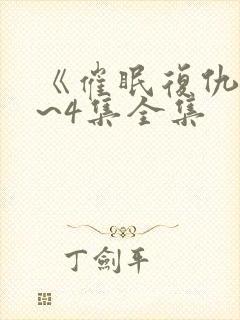 《催眠復仇
~4集全集
丁劍平